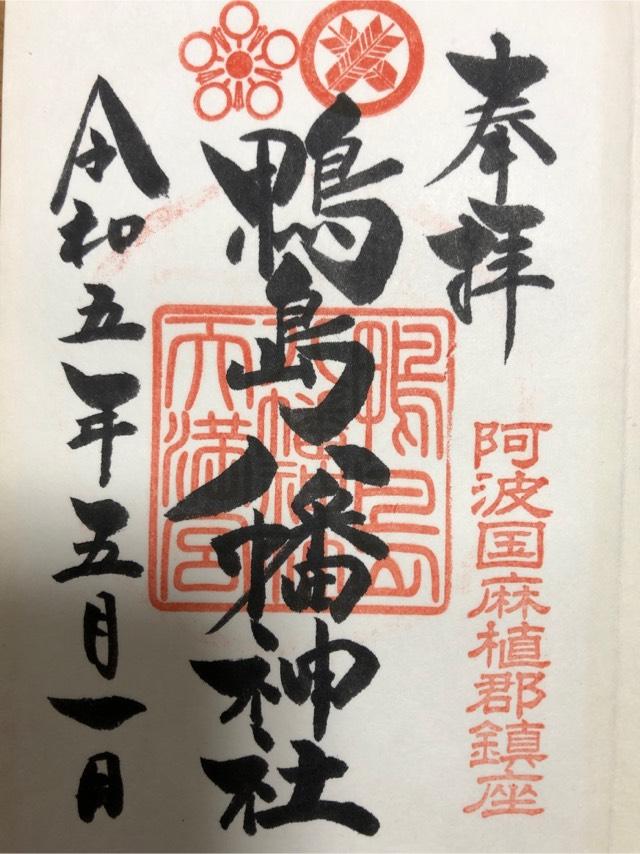 奉拝
阿波国麻植郡鎮座
鴨島八幡神社
鴨島
八幡神社
天満宮
令和五年五月一日